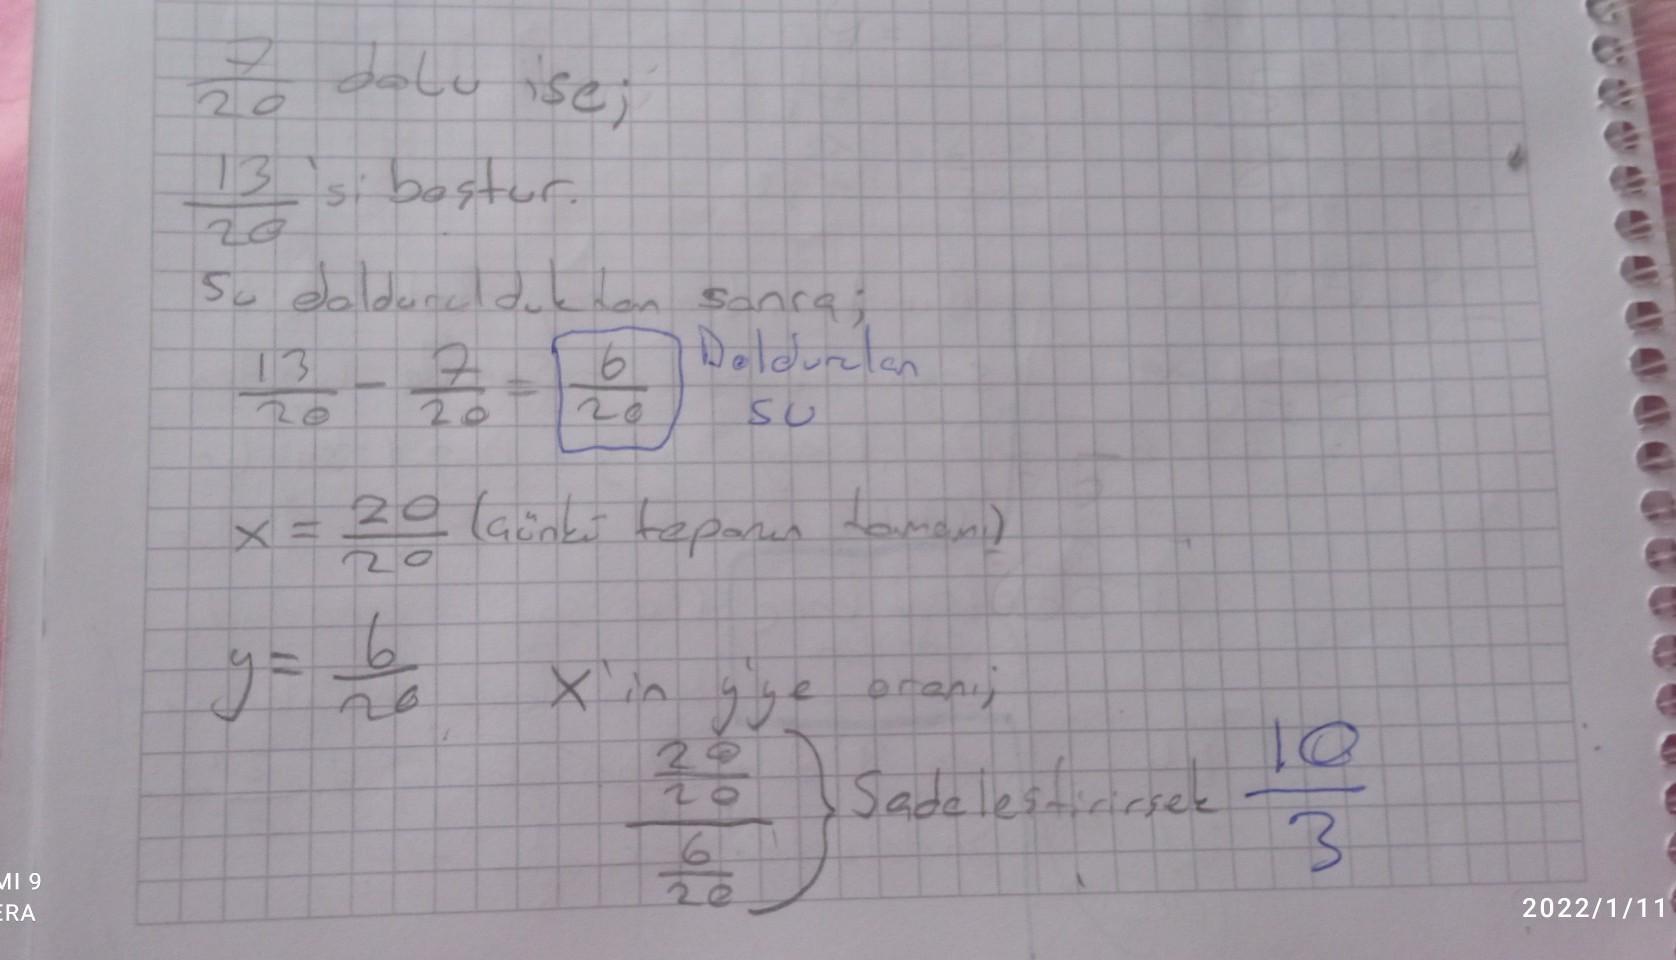 7/20 dolu ise;
13/20 'si boştur.
Su doldurulduktan sonra;
13/20 - 7/20 = 6/20 Doldurulan su
x = 20/20 (Çünkü tamamı)
y = 6/20 X'in y'ye oranı;
20/20 / 6/20 } Sadeleştirirsek 10/3
MI 9
ERA
2022/1/11